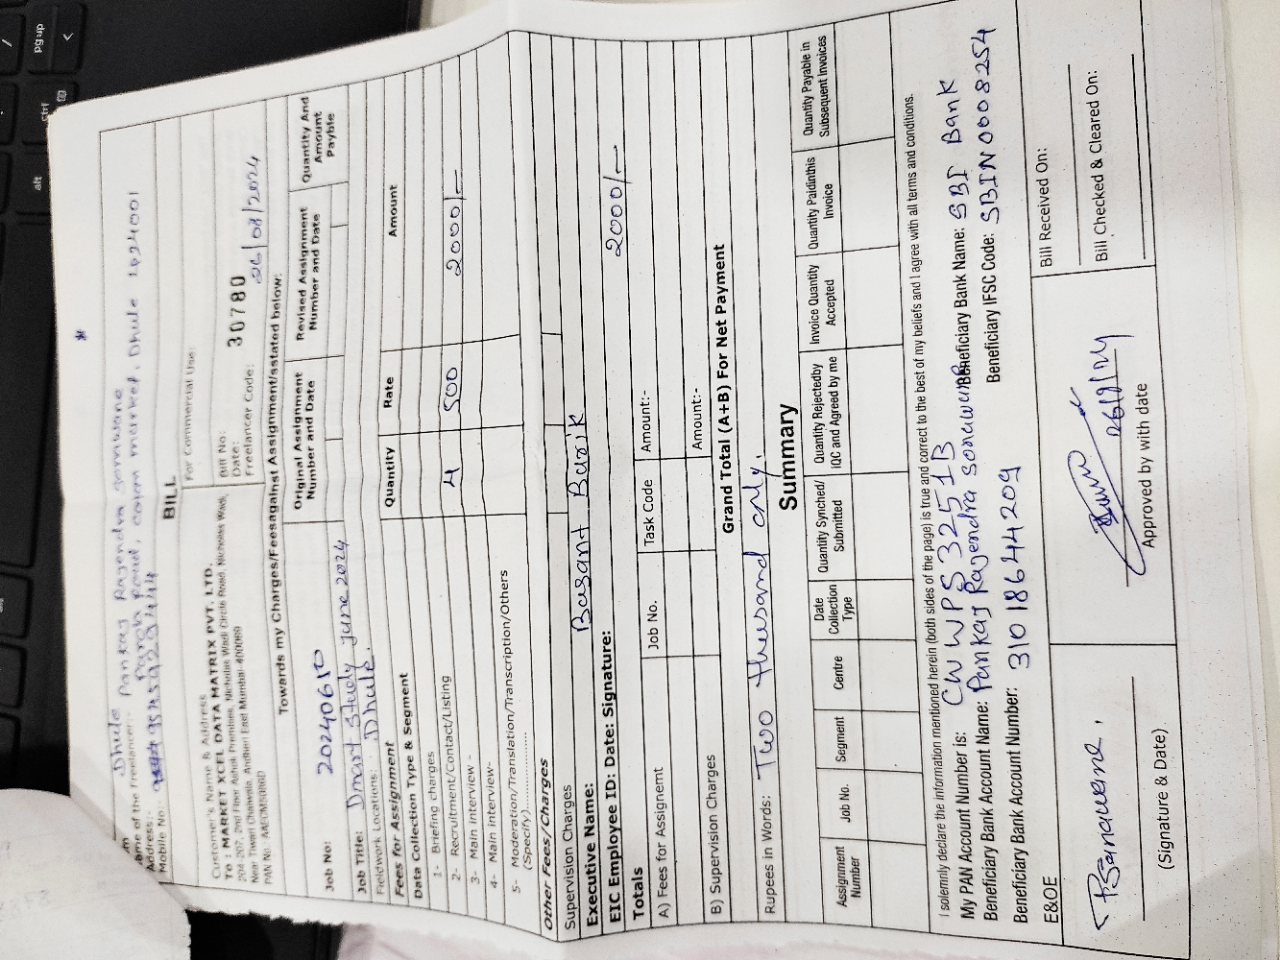 Dhule
Name of the Freelancer:- Pankaj Rajendra sonwane
Address:- Parola Road, market, Dhule 424001
Mobile No:-
BILL
Customer's Name & Address
To : MARKET XCEL DATA MATRIX PVT. LTD.
204-207, 2nd Floor Ashok Premises, Nicholas Wadi Circle Road, Nicholas Wadi,
Near Tiwari Chaiwala, Andheri East Mumbai-400069
PAN No.
For Commercial Use:
Bill No: 30780
Date: 26/08/2024
Freelancer Code:
Towards my Charges/Feesagainst Assignment/sstated below:
Job No: 20240610
Original Assignment Number and Date
Revised Assignment Number and Date
Quantity And Amount Payble
Job Title: Dmart Study june 2024
Fieldwork Locations: Dhule.
Fees for Assignment
Data Collection Type & Segment Quantity Rate Amount
1- Briefing charges
2- Recruitment/Contact/Listing 4 500 2000/-
3- Main Interview -
4- Main Interview-
5- Moderation/Translation/Transcription/Others
(Specify)..................
Other Fees/Charges
Supervision Charges
Executive Name: Basant Barik
EIC Employee ID: Date: Signature: 2000/-
Totals
A) Fees for Assignemt Job No. Task Code Amount:-
B) Supervision Charges Amount:-
Grand Total (A+B) For Net Payment
Rupees in Words: Two thousand only.
Summary
Assignment Number Job No. Segment Centre Date Collection Type Quantity Synched/ Submitted Quantity Rejectedby IQC and Agreed by me Invoice Quantity Accepted Quantity Paidinthis Invoice Quantity Payable in Subsequent Invoices
I solemnly declare the information mentioned herein (both sides of the page) is true and correct to the best of my beliefs and I agree with all terms and conditions.
My PAN Account Number is: CWWPS3251B Beneficiary Bank Name: SBI Bank
Beneficiary Bank Account Name: Pankaj Rajendra sonawane Beneficiary IFSC Code: SBIN0008254
Beneficiary Bank Account Number: 31018644209
E&OE
Psonawane.
(Signature & Date)
26/8/24
Approved by with date
Bill Received On:
Bill Checked & Cleared On: